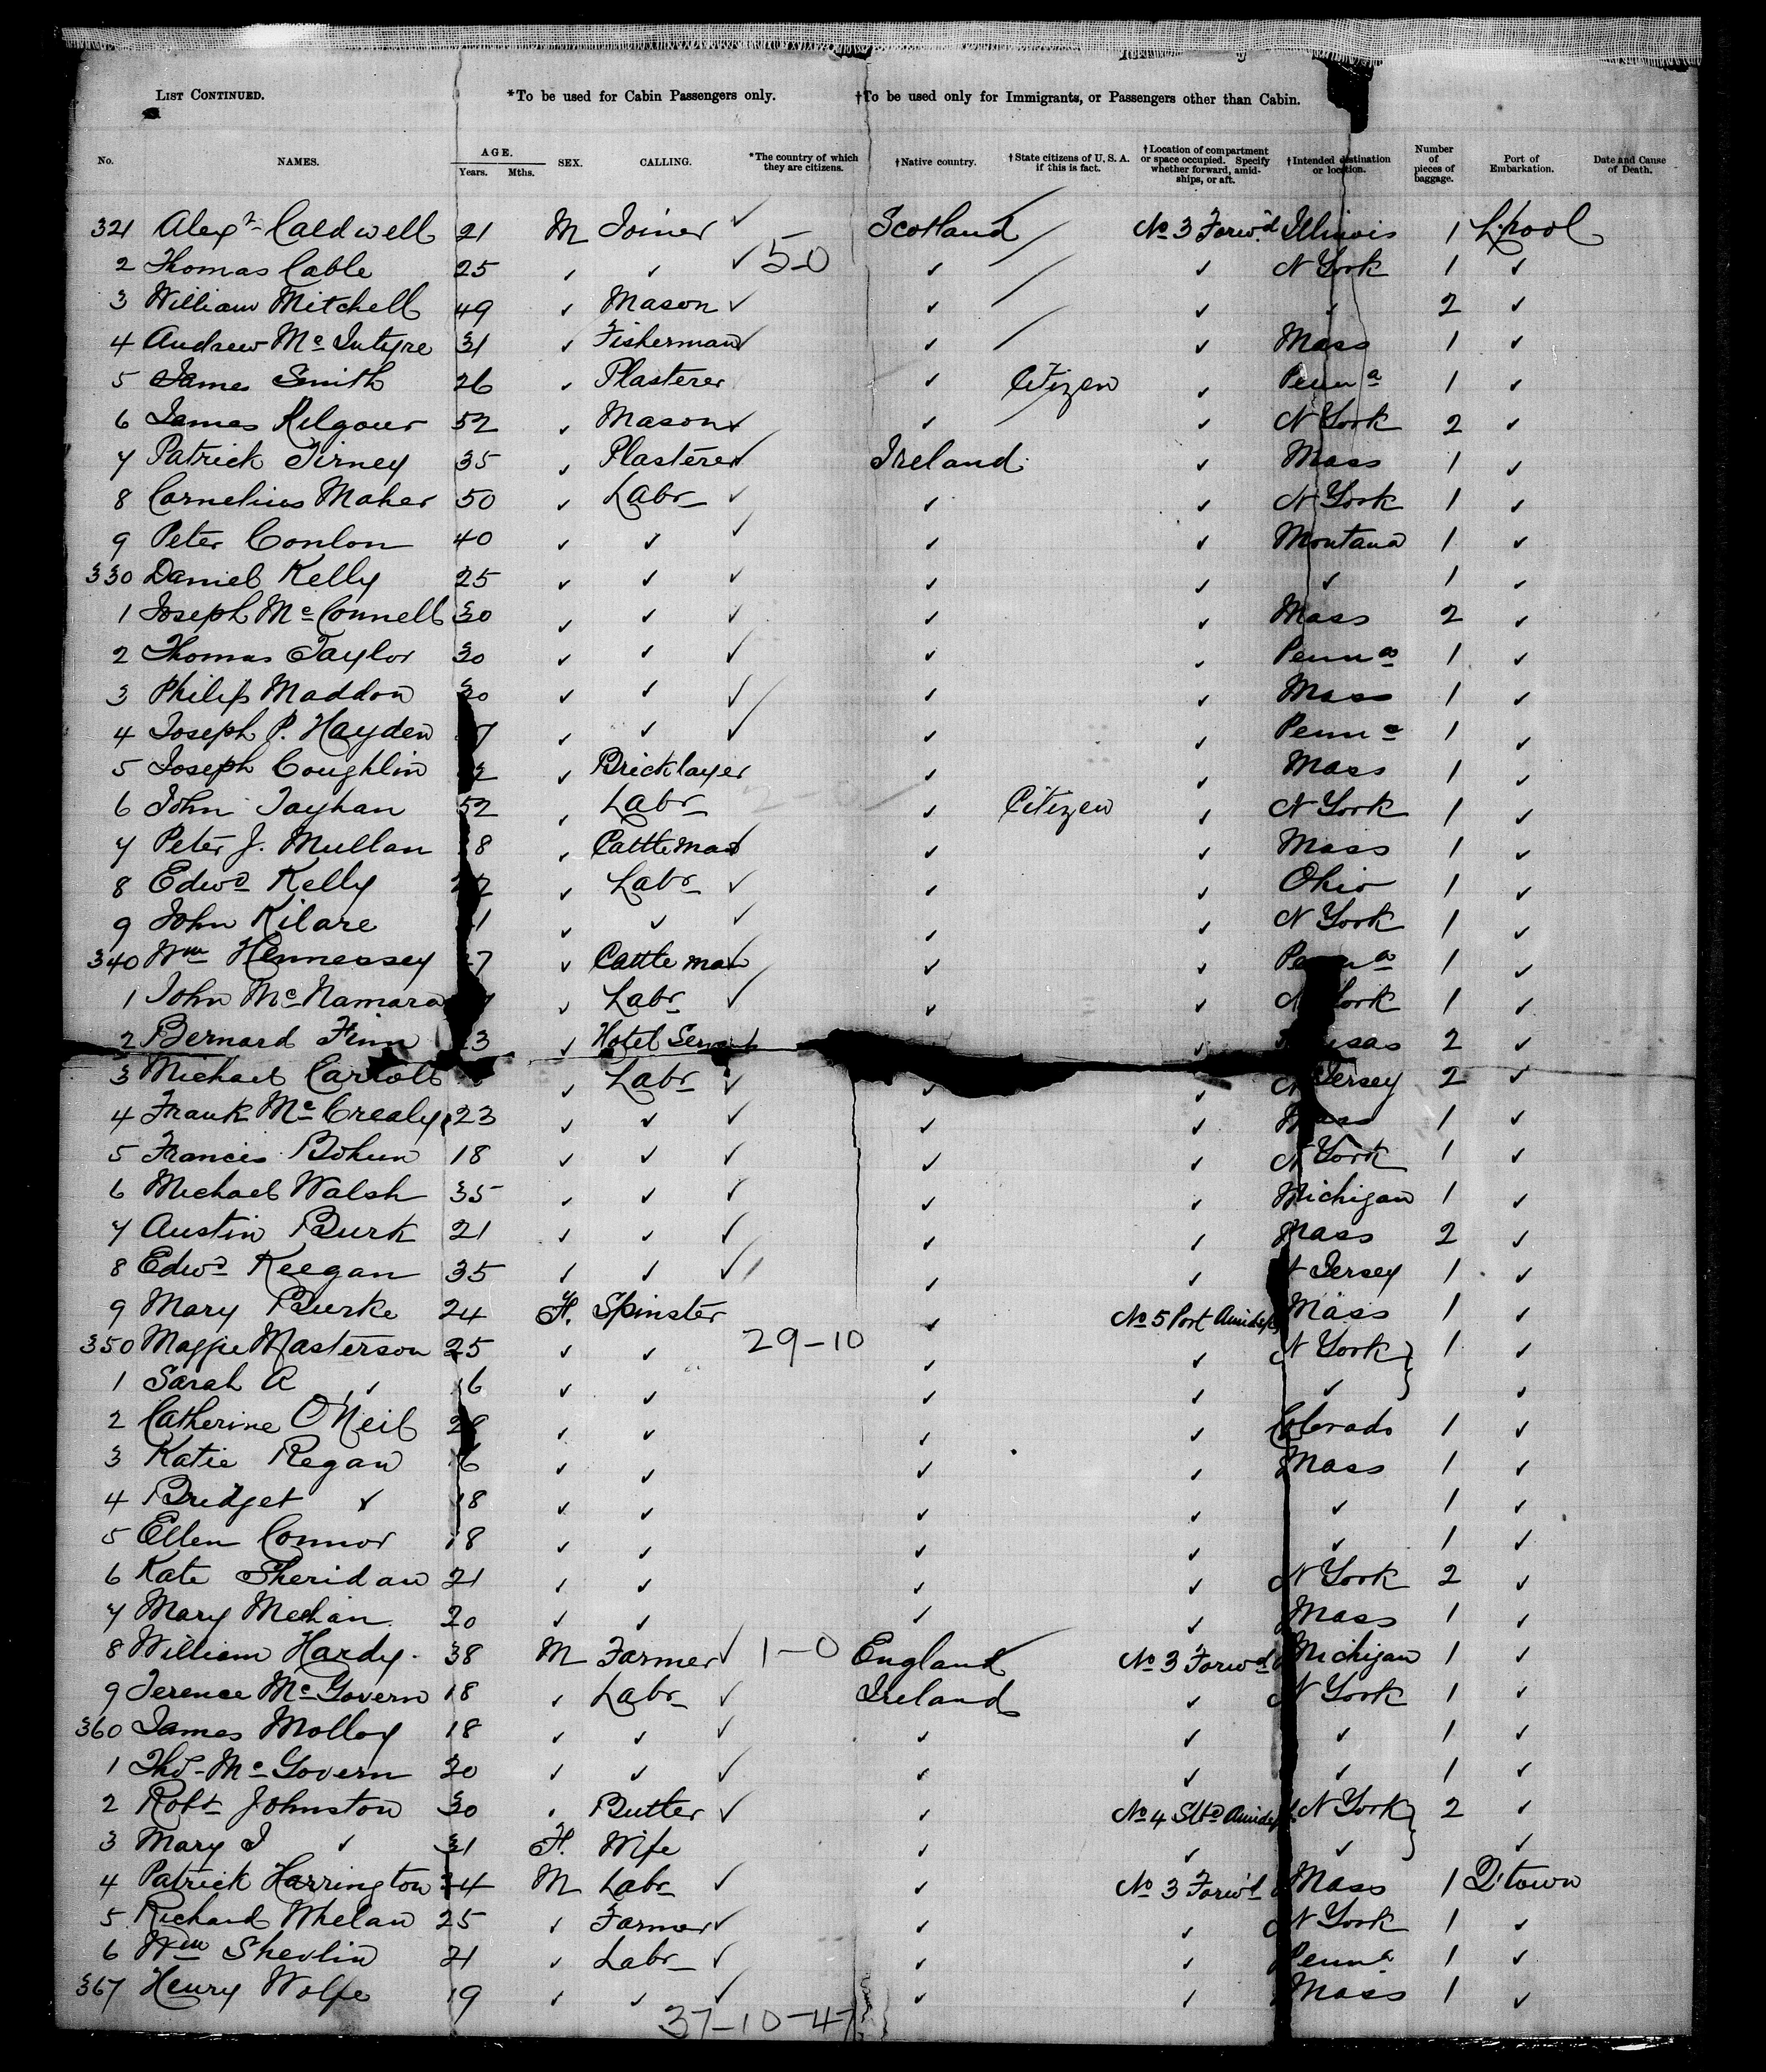 LIST CONTINUED. *To be used for Cabin Passengers only. †To be used only for Immigrants, or Passengers other than Cabin.
No. NAMES. AGE. Years. Mths. SEX. CALLING. *The country of which they are citizens. †Native country. †State citizens of U. S. A. if this is fact. †Location of compartment or space occupied. Specify whether forward, amidships, or aft. †Intended destination or location. Number of pieces of baggage. Port of Embarkation. Date and Cause of Death.
321 Alexr Caldwell 21 M Joiner ✓ Scotland No 3 Forwd Illinois 1 L'pool
2 Thomas Cable 25 ✓ ✓ ✓ 5-0 ✓ ✓ N York 1 ✓
3 William Mitchell 49 ✓ Mason ✓ ✓ ✓ ✓ 2 ✓
4 Andrew Mc Intyre 31 ✓ Fisherman ✓ ✓ ✓ Mass 1 ✓
5 James Smith 26 ✓ Plasterer ✓ Citizen ✓ Penna 1 ✓
6 James Kilgour 52 ✓ Mason ✓ ✓ ✓ N York 2 ✓
7 Patrick Tirney 35 ✓ Plasterer ✓ Ireland ✓ Mass 1 ✓
8 Cornelius Maher 50 ✓ Labr ✓ ✓ ✓ N York 1 ✓
9 Peter Conlon 40 ✓ ✓ ✓ ✓ ✓ Montana 1 ✓
330 Daniel Kelly 25 ✓ ✓ ✓ ✓ ✓ ✓ 1 ✓
1 Joseph Mc Connell 30 ✓ ✓ ✓ ✓ ✓ Mass 2 ✓
2 Thomas Taylor 30 ✓ ✓ ✓ ✓ ✓ Penna 1 ✓
3 Philip Maddon 30 ✓ ✓ ✓ ✓ ✓ Mass 1 ✓
4 Joseph P. Hayden ✓ ✓ ✓ ✓ ✓ Penna 1 ✓
5 Joseph Coughlin ✓ Bricklayer ✓ ✓ Mass 1 ✓
6 John Tayhan 52 ✓ Labr ✓ Citizen ✓ N York 1 ✓
7 Peter J. Mullan ✓ Cattleman ✓ ✓ Mass 1 ✓
8 Edwd Kelly ✓ Labr ✓ ✓ ✓ Ohio 1 ✓
9 John Kilare ✓ ✓ ✓ ✓ ✓ N York 1 ✓
340 Wm Hennessey ✓ Cattle man ✓ ✓ Penna 1 ✓
1 John Mc Namara ✓ Labr ✓ ✓ ✓ N York 1 ✓
2 Bernard Finn ✓ Hotel Servant ✓ 2 ✓
3 Michael Carroll ✓ Labr ✓ ✓ ✓ N Jersey 2 ✓
4 Frank Mc Crealy 23 ✓ ✓ ✓ ✓ ✓ Mass 1 ✓
5 Francis Bohun 18 ✓ ✓ ✓ ✓ ✓ N York 1 ✓
6 Michael Walsh 35 ✓ ✓ ✓ ✓ ✓ Michigan 1 ✓
7 Austin Burk 21 ✓ ✓ ✓ ✓ ✓ Mass 2 ✓
8 Edwd Keegan 35 ✓ ✓ ✓ ✓ ✓ N Jersey 1 ✓
9 Mary Burke 24 F. Spinster ✓ No 5 Port Amidsps Mass 1 ✓
350 Maggie Masterson 25 ✓ ✓ 29-10 ✓ ✓ N York } 1 ✓
1 Sarah A ✓ 16 ✓ ✓ ✓ ✓ ✓ ✓
2 Catherine O'Neil ✓ ✓ ✓ ✓ Colorado 1 ✓
3 Katie Regan 16 ✓ ✓ ✓ ✓ Mass 1 ✓
4 Bridget ✓ 18 ✓ ✓ ✓ ✓ ✓ 1 ✓
5 Ellen Connor 18 ✓ ✓ ✓ ✓ ✓ 1 ✓
6 Kate Sheridan 21 ✓ ✓ ✓ ✓ N York 2 ✓
7 Mary Mechan 20 ✓ ✓ ✓ ✓ Mass 1 ✓
8 William Hardy 38 M Farmer ✓ 1-0 England No 3 Forwd Michigan 1 ✓
9 Terence Mc Govern 18 ✓ Labr ✓ Ireland ✓ N York 1 ✓
360 James Molloy 18 ✓ ✓ ✓ ✓ ✓ ✓ 1 ✓
1 Thos Mc Govern 20 ✓ ✓ ✓ ✓ ✓ ✓ 1 ✓
2 Robt Johnston 30 ✓ Butler ✓ ✓ No 4 Stbd Amidsps N York } 2 ✓
3 Mary J ✓ 31 F. Wife ✓ ✓ ✓ ✓
4 Patrick Harrington M Labr ✓ ✓ No 3 Forwd Mass 1 Q'town
5 Richard Whelan 25 ✓ Farmer ✓ ✓ ✓ N York 1 ✓
6 Wm Shevlin 21 ✓ Labr ✓ ✓ ✓ Penna 1 ✓
367 Henry Wolfe 19 ✓ ✓ ✓ ✓ ✓ Mass 1 ✓
37-10-47